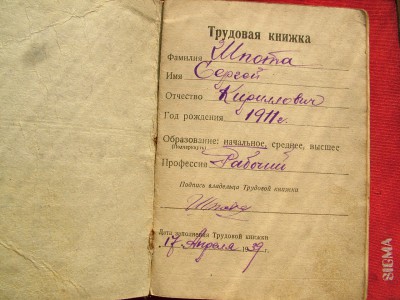 Трудовая книжка
Фамилия Шпота
Имя Сергей
Отчество Кириллович
Год рождения 1911г.
Образование: начальное, среднее, высшее
Подчеркнуть
Профессия Рабочий
Подпись владельца Трудовой книжки
Шпота
Дата заполнения Трудовой книжки
17 Апреля 1939 г.
SIGMA